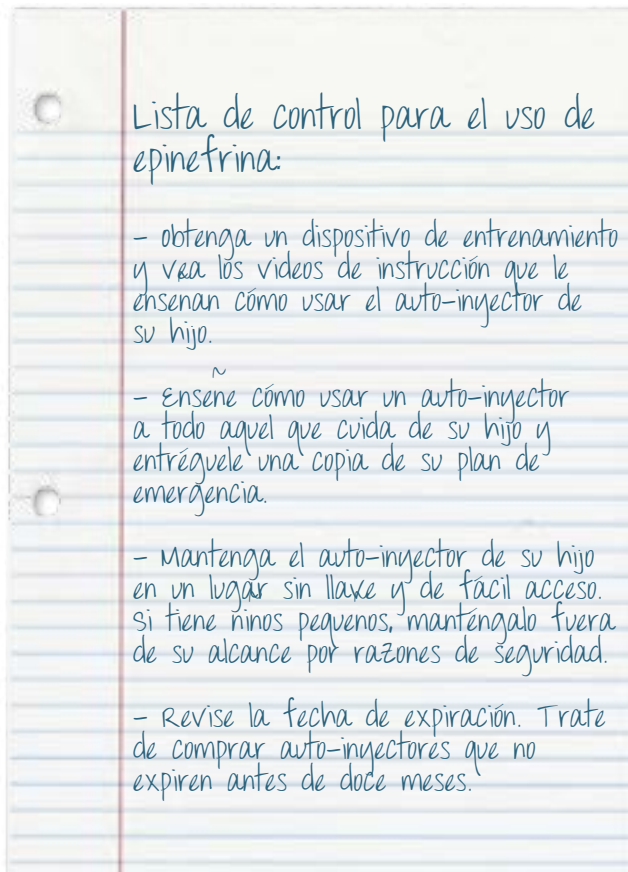 Lista de control para el uso de
epinefrina:
- obtenga un dispositivo de entrenamiento
y vea los videos de instrucción que le
ensenan cómo usar el auto-inyector de
su hijo.
- Enseñe cómo usar un auto-inyector
a todo aquel que cuida de su hijo y
entréguele una copia de su plan de
emergencia.
- Mantenga el auto-inyector de su hijo
en un lugar sin llave y de fácil acceso.
Si tiene ninos pequenos, manténgalo fuera
de su alcance por razones de seguridad.
- Revise la fecha de expiración. Trate
de comprar auto-inyectores que no
expiren antes de doce meses.